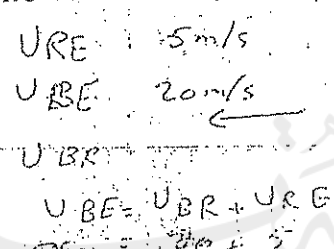 URE : 5m/s
UBE 20m/s
UBR
UBE = UBR + URE